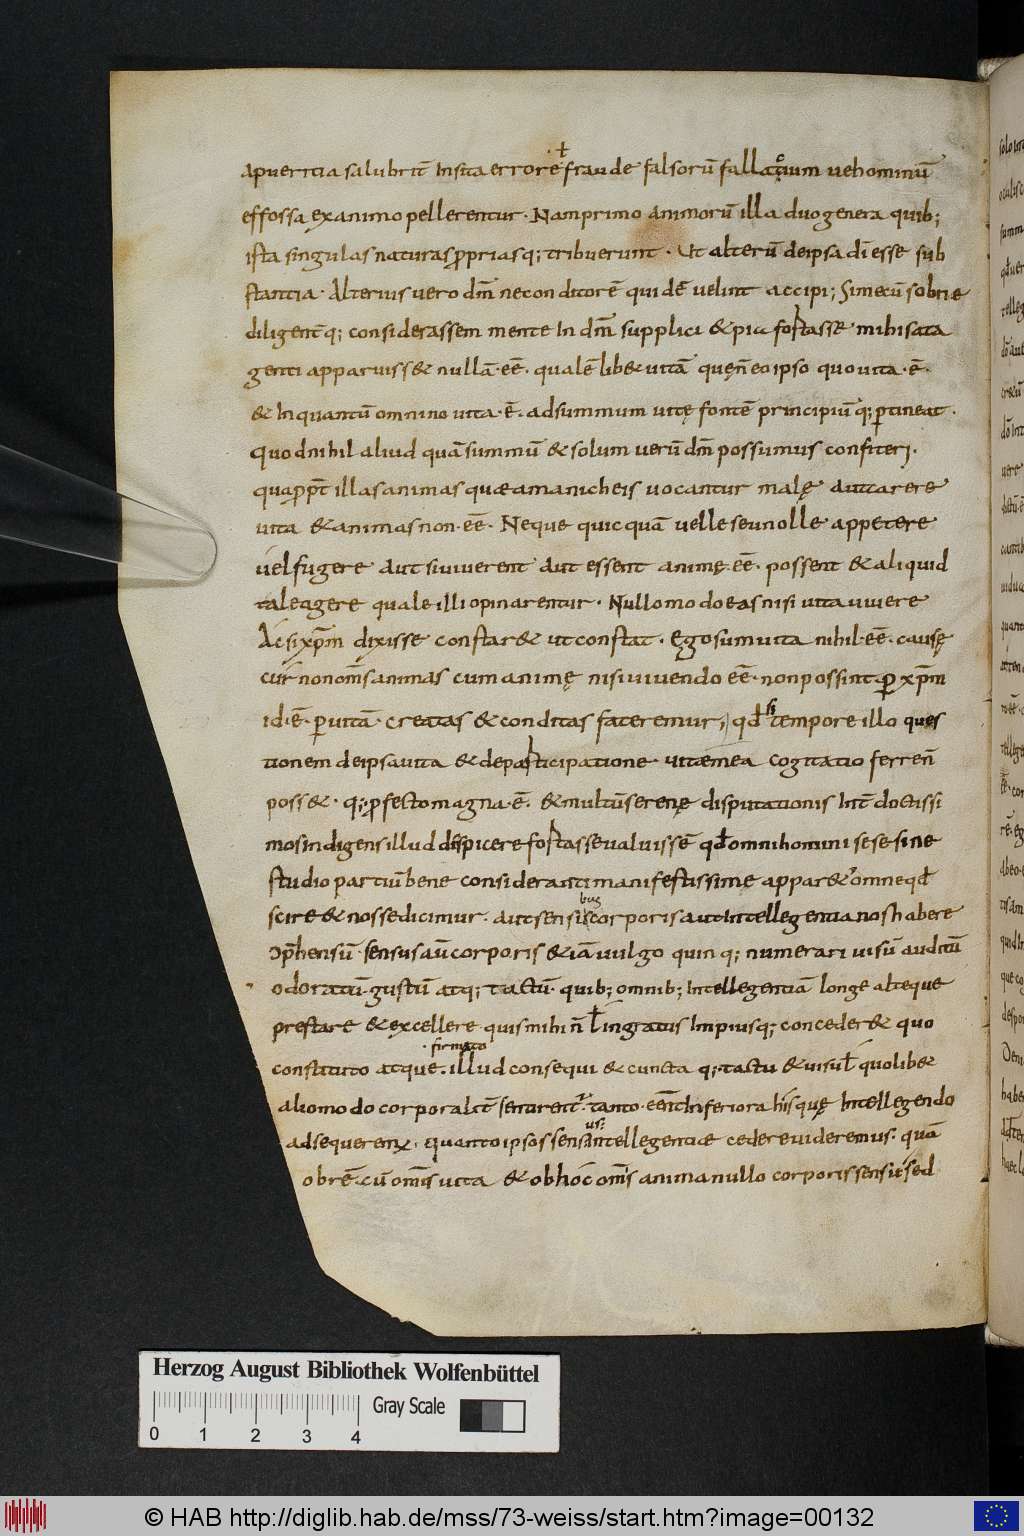 apueritia salubrit̄ Insita errore fraude falsorū fallaciūm uehominū
effossa exanimo pellerentur· Nam primo animorū illa duo genera quib;
ista singulas naturas p̄prias q; tribuerunt · Ut alterū deipsa dī esse sub
stantia· Alterius uero dm̄ necon ditorē quidē uelint accipi; Si mecū sobriẹ
diligentq; considerassem mente In dm̄ supplici & pia fortasse mihi sata
genti apparuiss& nullā ·eē· qualē lib& uitā quęn̄ eo ipso quo uita ·ē·
& In quantū omnino uita ·ē· ad summum uitę fontē principiūq; p̲tineat·
Quod nihil aliud quā summū & solum uerū dm̄ possumus confiteri·
quapp̄t illas animas quæ amanicheis uocantur malę aut carere
uita & animas non ·eē· Neque quicquā uelle seu nolle appetere
uel fugere aut si uiuerent aut essent animę ·eē· possent & aliquid
tale agere quale illi opinarentur· Nullo modo eas nisi uita uiuere
Ac si xp̄m dixisse constar& ut constat· Ego sum uita nihil ·eē· causę
cur non om̄s animas cum animę nisi uiuendo eē· non possint p̲ xp̄m
id·ē· p̲ uitā· creatas & conditas fateremur; qd̄ si tempore illo ques
tionem deipsa uita & de participatione uitæ mea cogitatio ferren̄
poss&· q; p̲festo magna ·ē· & multū serenę disputationis Int̄ doctissi
mos indigens illud dispicere fortasse ualuissē qd̄ omni homini se se sine
studio partiū bene consideranti manifestissime appar& omne qd̄
scire & nosse dicimur· aut sensibus corporis aut Intellegentia nos habere
ɔp̄hensū· sensus aū corporis &iā uulgo quinq; numerari uisū auditū
odoratū· gustū atq; tactū· quib; omnib; Intellegentiā longe alteque
prestare & excellere quis mihi n̄ ł ingratus Impiusq; conceder& quo
constituto atque· firmato illud consequi & cuncta q; tactu & uisu ł quolib&
alio modo corporalit̄ sentirent̄· tanto ·eēnt Inferiora hisquę Intellegendo
adsequerent̄· quanto ipsos sensus Intellegentiæ cedere uideremus· quā
obrē· cū om̄is uita & ob hoc om̄is anima nullo corporis sensu· sed
Herzog August Bibliothek Wolfenbüttel
Gray Scale
0 1 2 3 4
© HAB http://diglib.hab.de/mss/73-weiss/start.htm?image=00132